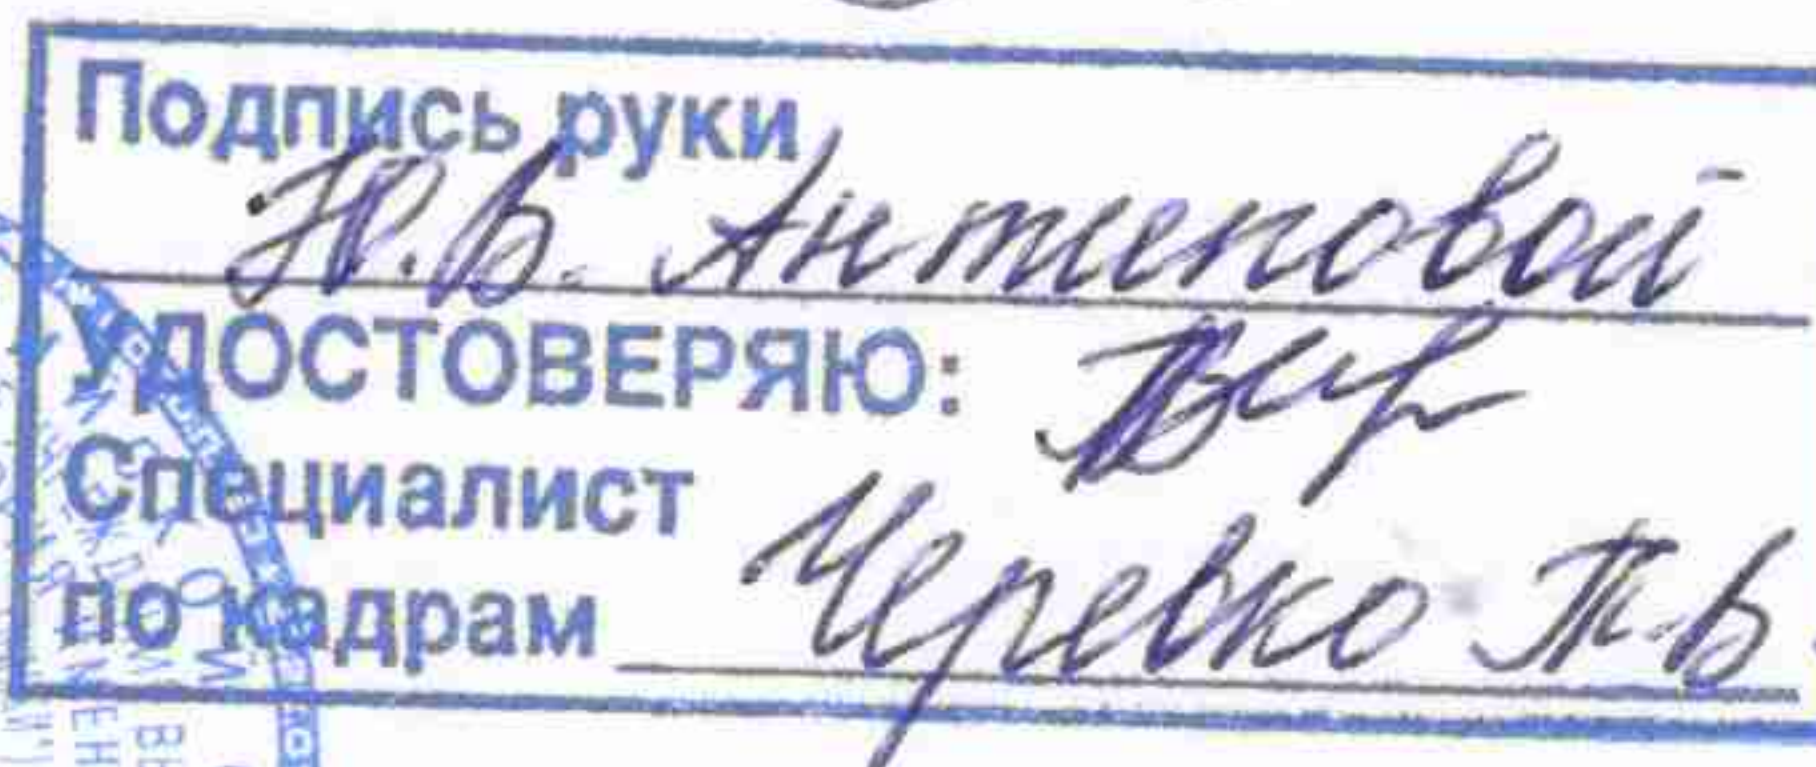 Подпись руки
Ю.В. Антиповой
УДОСТОВЕРЯЮ:
Специалист
по кадрам Черевко Т.В.